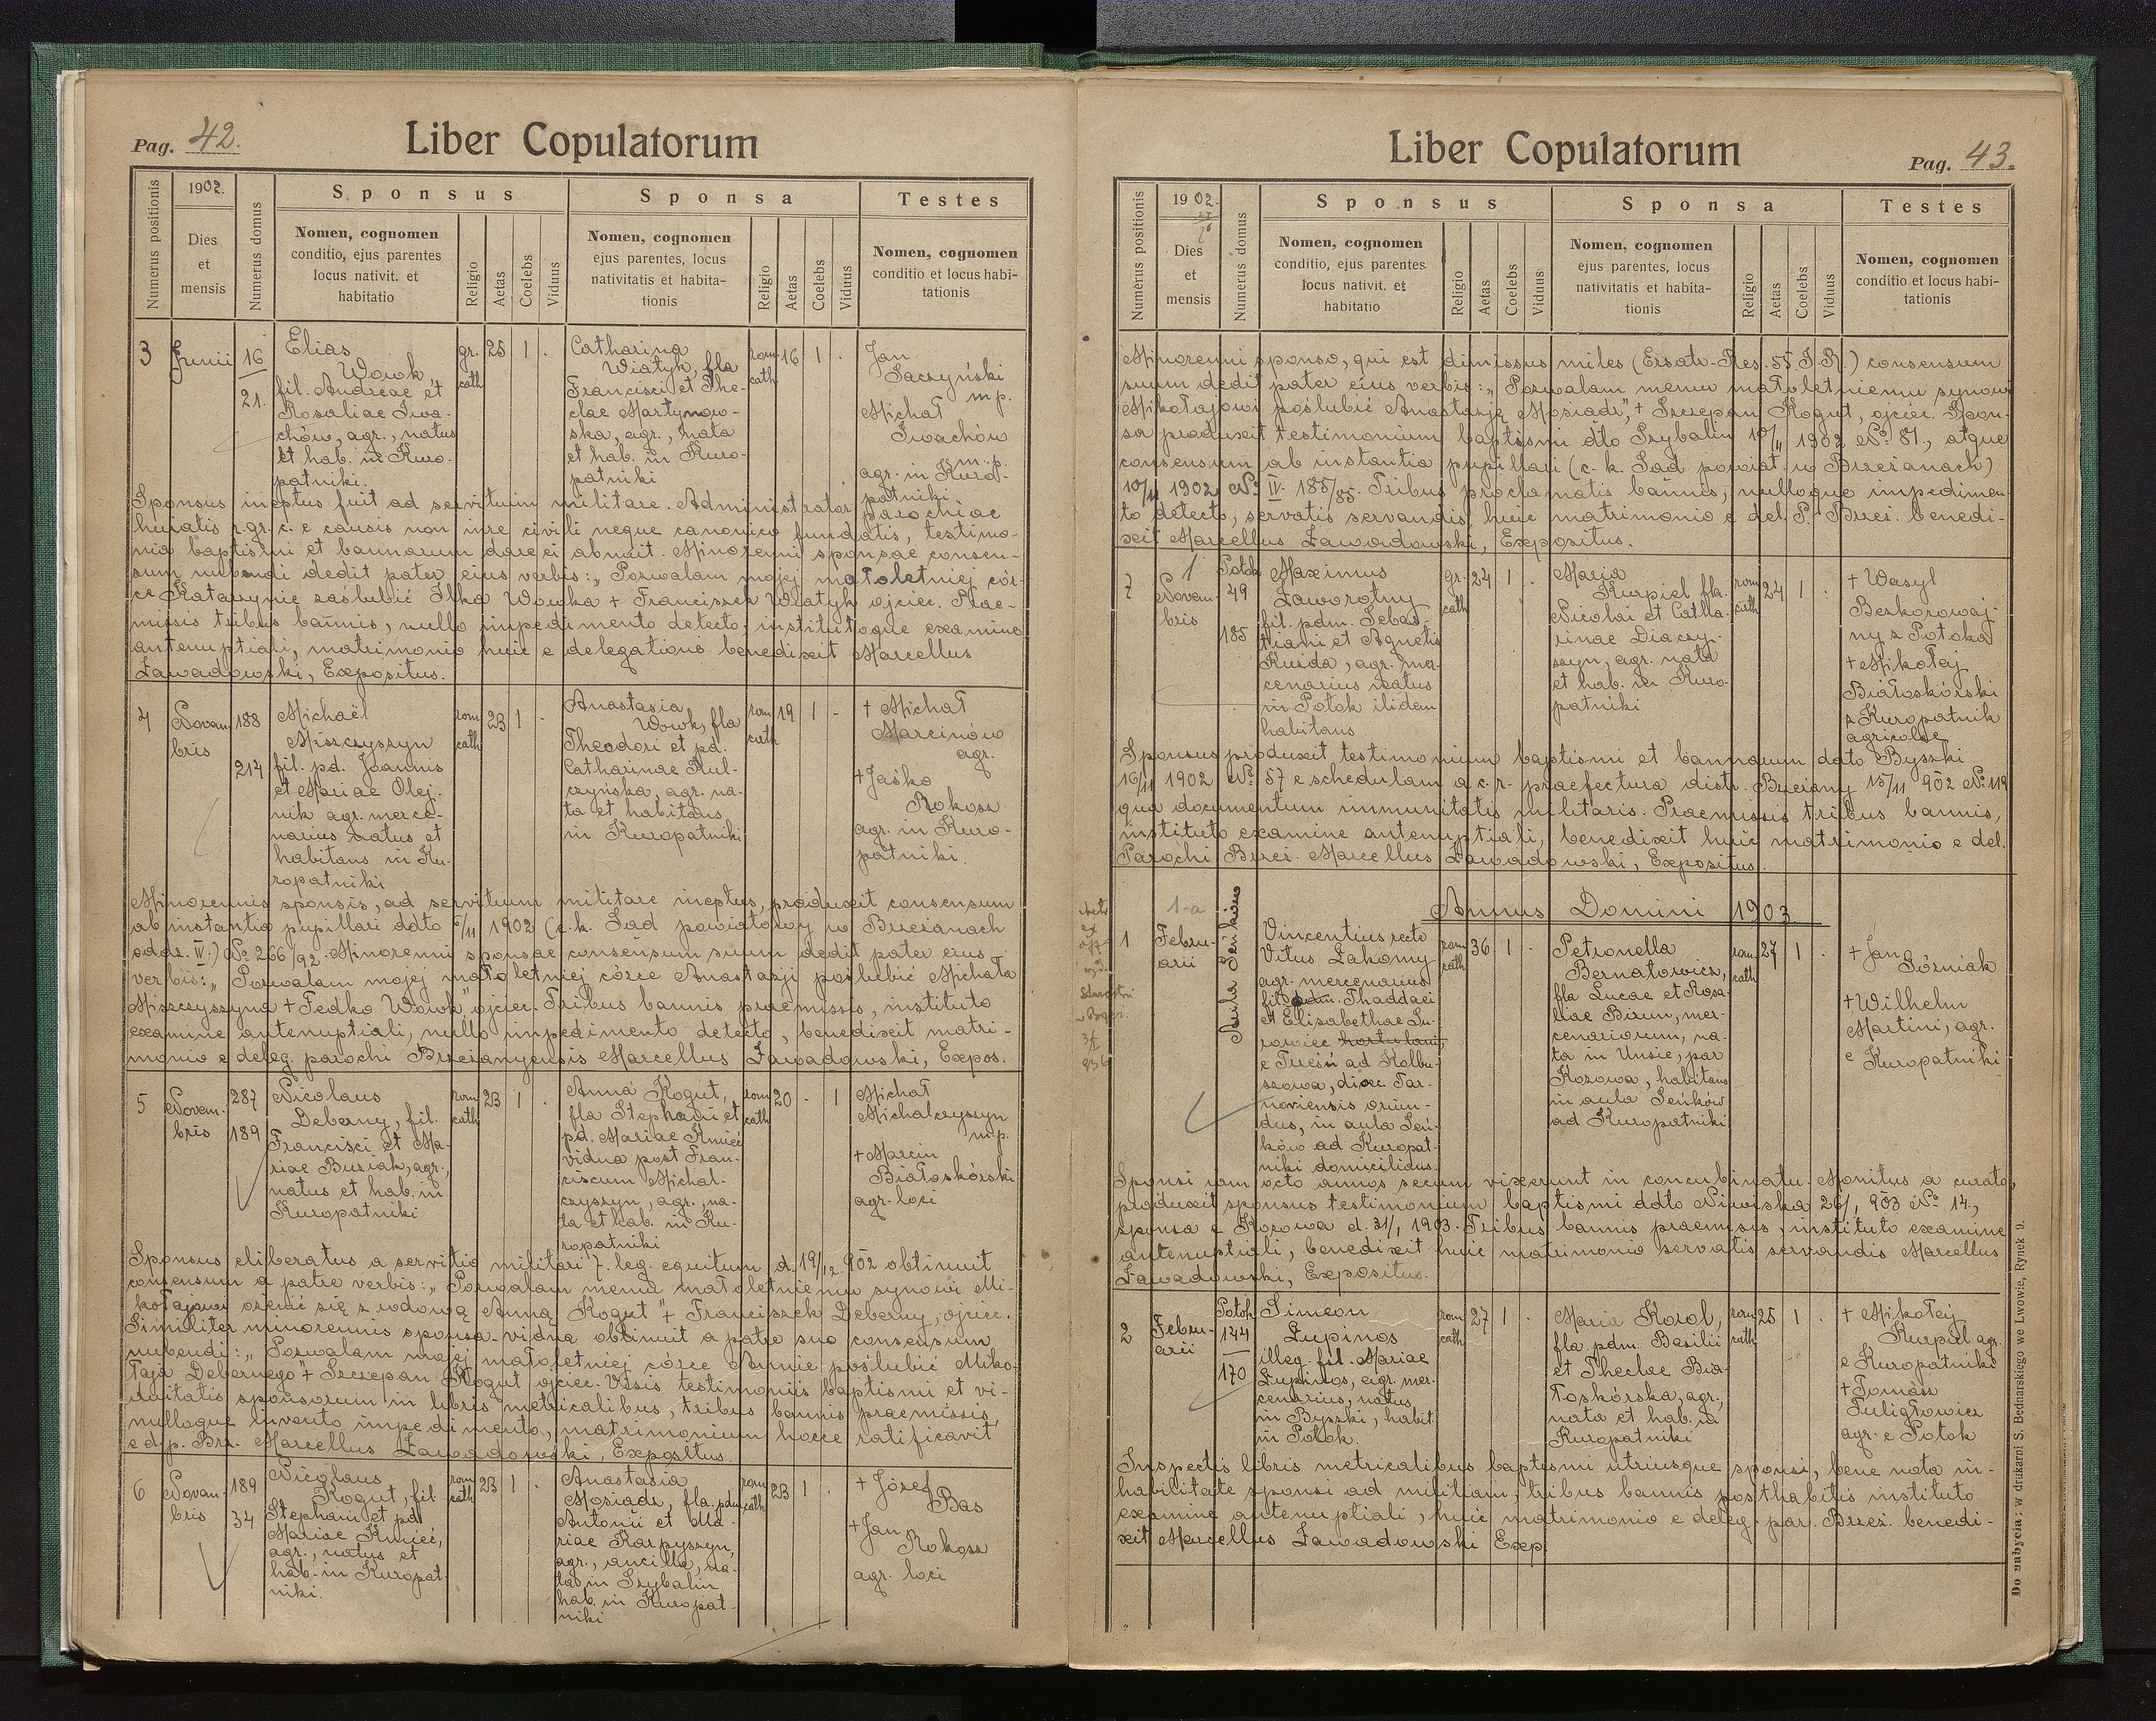 Pag. 42.
Liber Copulatorum
Numerus positionis
1902.
Dies
et
mensis
Numerus domus
Sponsus
Nomen, cognomen
conditio, ejus parentes
locus nativit. et
habitatio
Religio
Aetas
Coelebs
Viduus
Sponsa
Nomen, cognomen
ejus parentes, locus
nativitatis et habita-
tionis
Religio
Aetas
Coelebs
Viduus
Testes
Nomen, cognomen
conditio et locus habi-
tationis
3
Junii
16
21.
Elias
Wowk,
fil. Andreae et
Rosaliae Iwa-
chów, agr., natus
et hab. in Kuro-
patniki.
gr. cath
25
1
.
Catharina
Wiatyk, fla
Francisci et The-
clae Martynow-
ska, agr., nata
et hab. in Kuro-
patniki
rom. cath
16
1
.
Jan
Saczyński
m.p.
Michał
Iwachów
m.p.
agr. in Kuro-
patniki.
Sponsus ineptus fuit ad servitium militare. Administrator parochiae
huiatis r. gr. c. e causis non iure civili neque canonico fundatis, testimo-
nia baptismi et bannorum dare ei abnuit. Minorenni sponsae consen-
sum nubendi dedit pater eius verbis: „Pozwalam mojej małoletniej cór-
ce Katarzynie zaślubić Ilka Wowka + Franciszek Wiatyk ojciec. Prae-
missis tribus bannis, nullo impedimento detecto, institutoque examine
antenuptiali, matrimonio huic e delegatione benedixit Marcellus
Zawadowski, Expositus.
4
Novem-
bris
188
214
Michaël
Miszczyszyn
fil. pd. Joannis
et Mariae Olej-
nik agr. merce-
narius natus et
habitans in Ku-
ropatniki
rom cath
23
1
.
Anastasia
Wowk, fla
Theodori et pd.
Catharinae Kul-
czyńska, agr. na-
ta et habitans
in Kuropatniki
rom cath
19
1
-
+ Michał
Marcinów
agr.
+ Jaśko
Rokosz
agr. in Kuro-
patniki.
Minorennis sponsis, ad servitium militare ineptus, produxit consensum
ab instantia pupillari ddto 6/11 1902 (c. k. Sąd powiatowy w Brzeżanach
oddz. IV.) No 266/92. Minorenni sponsae consensum suum dedit pater eius
verbis: „Pozwalam mojej małoletniej córce Anastazji poślubić Michała
Miszczyszyna + Fedko Wowk" ojciec. Tribus bannis praemissis, instituto
examine antenuptiali, nullo impedimento detecto, benedixit matri-
monio e deleg. parochi Brzezanyensis Marcellus Zawadowski, Expos.
5
Novem-
bris
287
189
Nicolaus
Deberny, fil.
Francisci et Ma-
riae Buziak, agr.,
natus et hab. in
Kuropatniki
rom cath
23
1
.
Anna Kogut,
fla Stephani et
pd. Mariae Kmieć
vidua post Fran-
ciscum Michal-
czyszyn, agr., na-
ta et hab. in Ku-
ropatniki
rom cath
20
.
1
Michał
Michalczyszyn
m.p.
+ Marcin
Białoskórski
agr. loci
Sponsus eliberatus a servitio militari 7. leg. equitum d. 19/12 902 obtinuit
consensum a patre verbis: „Pozwalam memu małoletniemu synowi Mi-
kołajowi ożenić się z wdową Anną Kogut" + Franciszek Deberny, ojciec.
Similiter minorennis sponsa-vidua obtinuit a patre suo consensum
nubendi: „Pozwalam mojej małoletniej córce Annie poślubić Miko-
łaja Debernego" + Szczepan Kogut ojciec. Visis testimoniis baptismi et vi-
duitatis sponsorum in libris metricalibus, tribus bannis praemissis,
nulloque invento impedimento, matrimonium hocce ratificavit
e d. p. Brz. Marcellus Zawadowski, Expositus.
6
Novem-
bris
189
34
Nicolaus
Kogut, fil
Stephani et pd
Mariae Kmieć,
agr., natus et
hab. in Kuropat-
niki.
rom cath
23
1
.
Anastasia
Mosiadz, fla. pdm
Antonii et Ma-
riae Karpyszyn,
agr., ancilla, na-
ta in Szybalin
hab. in Kuropat-
niki
rom cath
23
1
.
+ Józef
Bas
+ Jan
Rokosz
agr. loci
Liber Copulatorum
Pag. 43.
Numerus positionis
1902.
Dies
et
mensis
Numerus domus
Sponsus
Nomen, cognomen
conditio, ejus parentes
locus nativit. et
habitatio
Religio
Aetas
Coelebs
Viduus
Sponsa
Nomen, cognomen
ejus parentes, locus
nativitatis et habita-
tionis
Religio
Aetas
Coelebs
Viduus
Testes
Nomen, cognomen
conditio et locus habi-
tationis
Minorenni sponso, qui est dimissus miles (Ersatz-Res. 55 I. R.) consensum
suum dedit pater eius verbis: „Pozwalam memu małoletniemu synowi
Mikołajowi poślubić Anastazję Mosiadz", + Szczepan Kogut, ojciec. Spon-
sa produxit testimonium baptismi dto Szybalin 10/11 1902 No. 81, atque
consensum ab instantia pupillari (c. k. Sąd powiat. w Brzeżanach)
10/11 1902 No IV. 185/85. Tribus proclamatis bannis, nulloque impedimen-
to detecto, servatis servandis, huic matrimonio e del. P. Brzez. benedi-
xit Marcellus Zawadowski, Expositus.
7
1
Novem-
bris
Potok
49
185
Maximus
Zaworotny
fil. pdm. Sebas-
tiani et Agnetis
Kuzda, agr. mer-
cenarius natus
in Potok ibidem
habitans
gr. cath
24
1
.
Maria
Kurpiel fla.
Nicolai et Catha-
rinae Diaczy-
szyn, agr. nata
et hab. in Kuro-
patniki
rom cath
24
1
.
+ Wasyl
Bezkorowaj-
ny z Potoka
+ Mikołaj
Białoskórski
z Kuropatnik
agricolae
Sponsus produxit testimonium baptismi et bannorum ddto Byszki
16/11 1902 No. 57 e schedulam a c. r. praefectura distr. Brzeżany 15/11 902 No 119
qua documentum immunitatis militaris. Praemissis tribus bannis,
instituto examine antenuptiali, benedixit huic matrimonio e del.
Parochi Brzez. Marcellus Zawadowski, Expositus.
Annus Domini 1903.
1
1-a
Febru-
arii
Aula Seńków
Vincentius recte
Vitus Łakomy
agr. mercenarius
fil. pdm. Thaddaei
et Elisabethae Su-
rowiec hortulani,
e Trześń ad Kolbu-
szowa, dioec Tar-
noviensis oriun-
dus, in aula Seń-
ków ad Kuropat-
niki domicilidus.
rom cath
36
1
-
Petronella
Bernatowicz,
fla Lucae et Rosa-
liae Birun, mer-
cenariorum, na-
ta in Unsie, par
Kozowa, habitans
in aula Seńków
ad Kuropatniki
rom. cath
27
1
.
+ Jan
Józniak
+ Wilhelm
Martini, agr.
e Kuropatniki
Sponsi iam octo annos secum vixerunt in concubinatu. Monitus a curato,
produxit sponsus testimonium baptismi ddto Niwiska 26/1 903 No 14.,
sponsa e Kozowa d. 31/1 1903. Tribus bannis praemissis, instituto examine
antenuptiali, benedixit huic matrimonio servatis servandis Marcellus
Zawadowski, Expositus.
2
Febru-
arii
Potok
144
170
Simeon
Łupinos
illeg. fil. Mariae
Łupinos, agr. mer-
cenarius, natus
in Byszki, habit
in Potok.
rom cath
27
1
.
Maria Kozol,
fla pdm. Basilii
et Theclae Bia-
łoskórska, agr.,
nata et hab. in
Kuropatniki
rom cath
25
1
.
+ Mikołaj
Kurpiel agr.
e Kuropatniki
+ Tomasz
Tuligłowicz
agr. e Potok
Inspectis libris metricalibus baptismi utriusque sponsi, bene nota in-
habilitate sponsi ad militiam, tribus bannis posthabitis instituto
examine antenuptiali, huic matrimonio e deleg. par. Brzez. benedi-
xit Marcellus Zawadowski Exp.
Do nabycia: w drukarni S. Bednarskiego we Lwowie, Rynek 9.